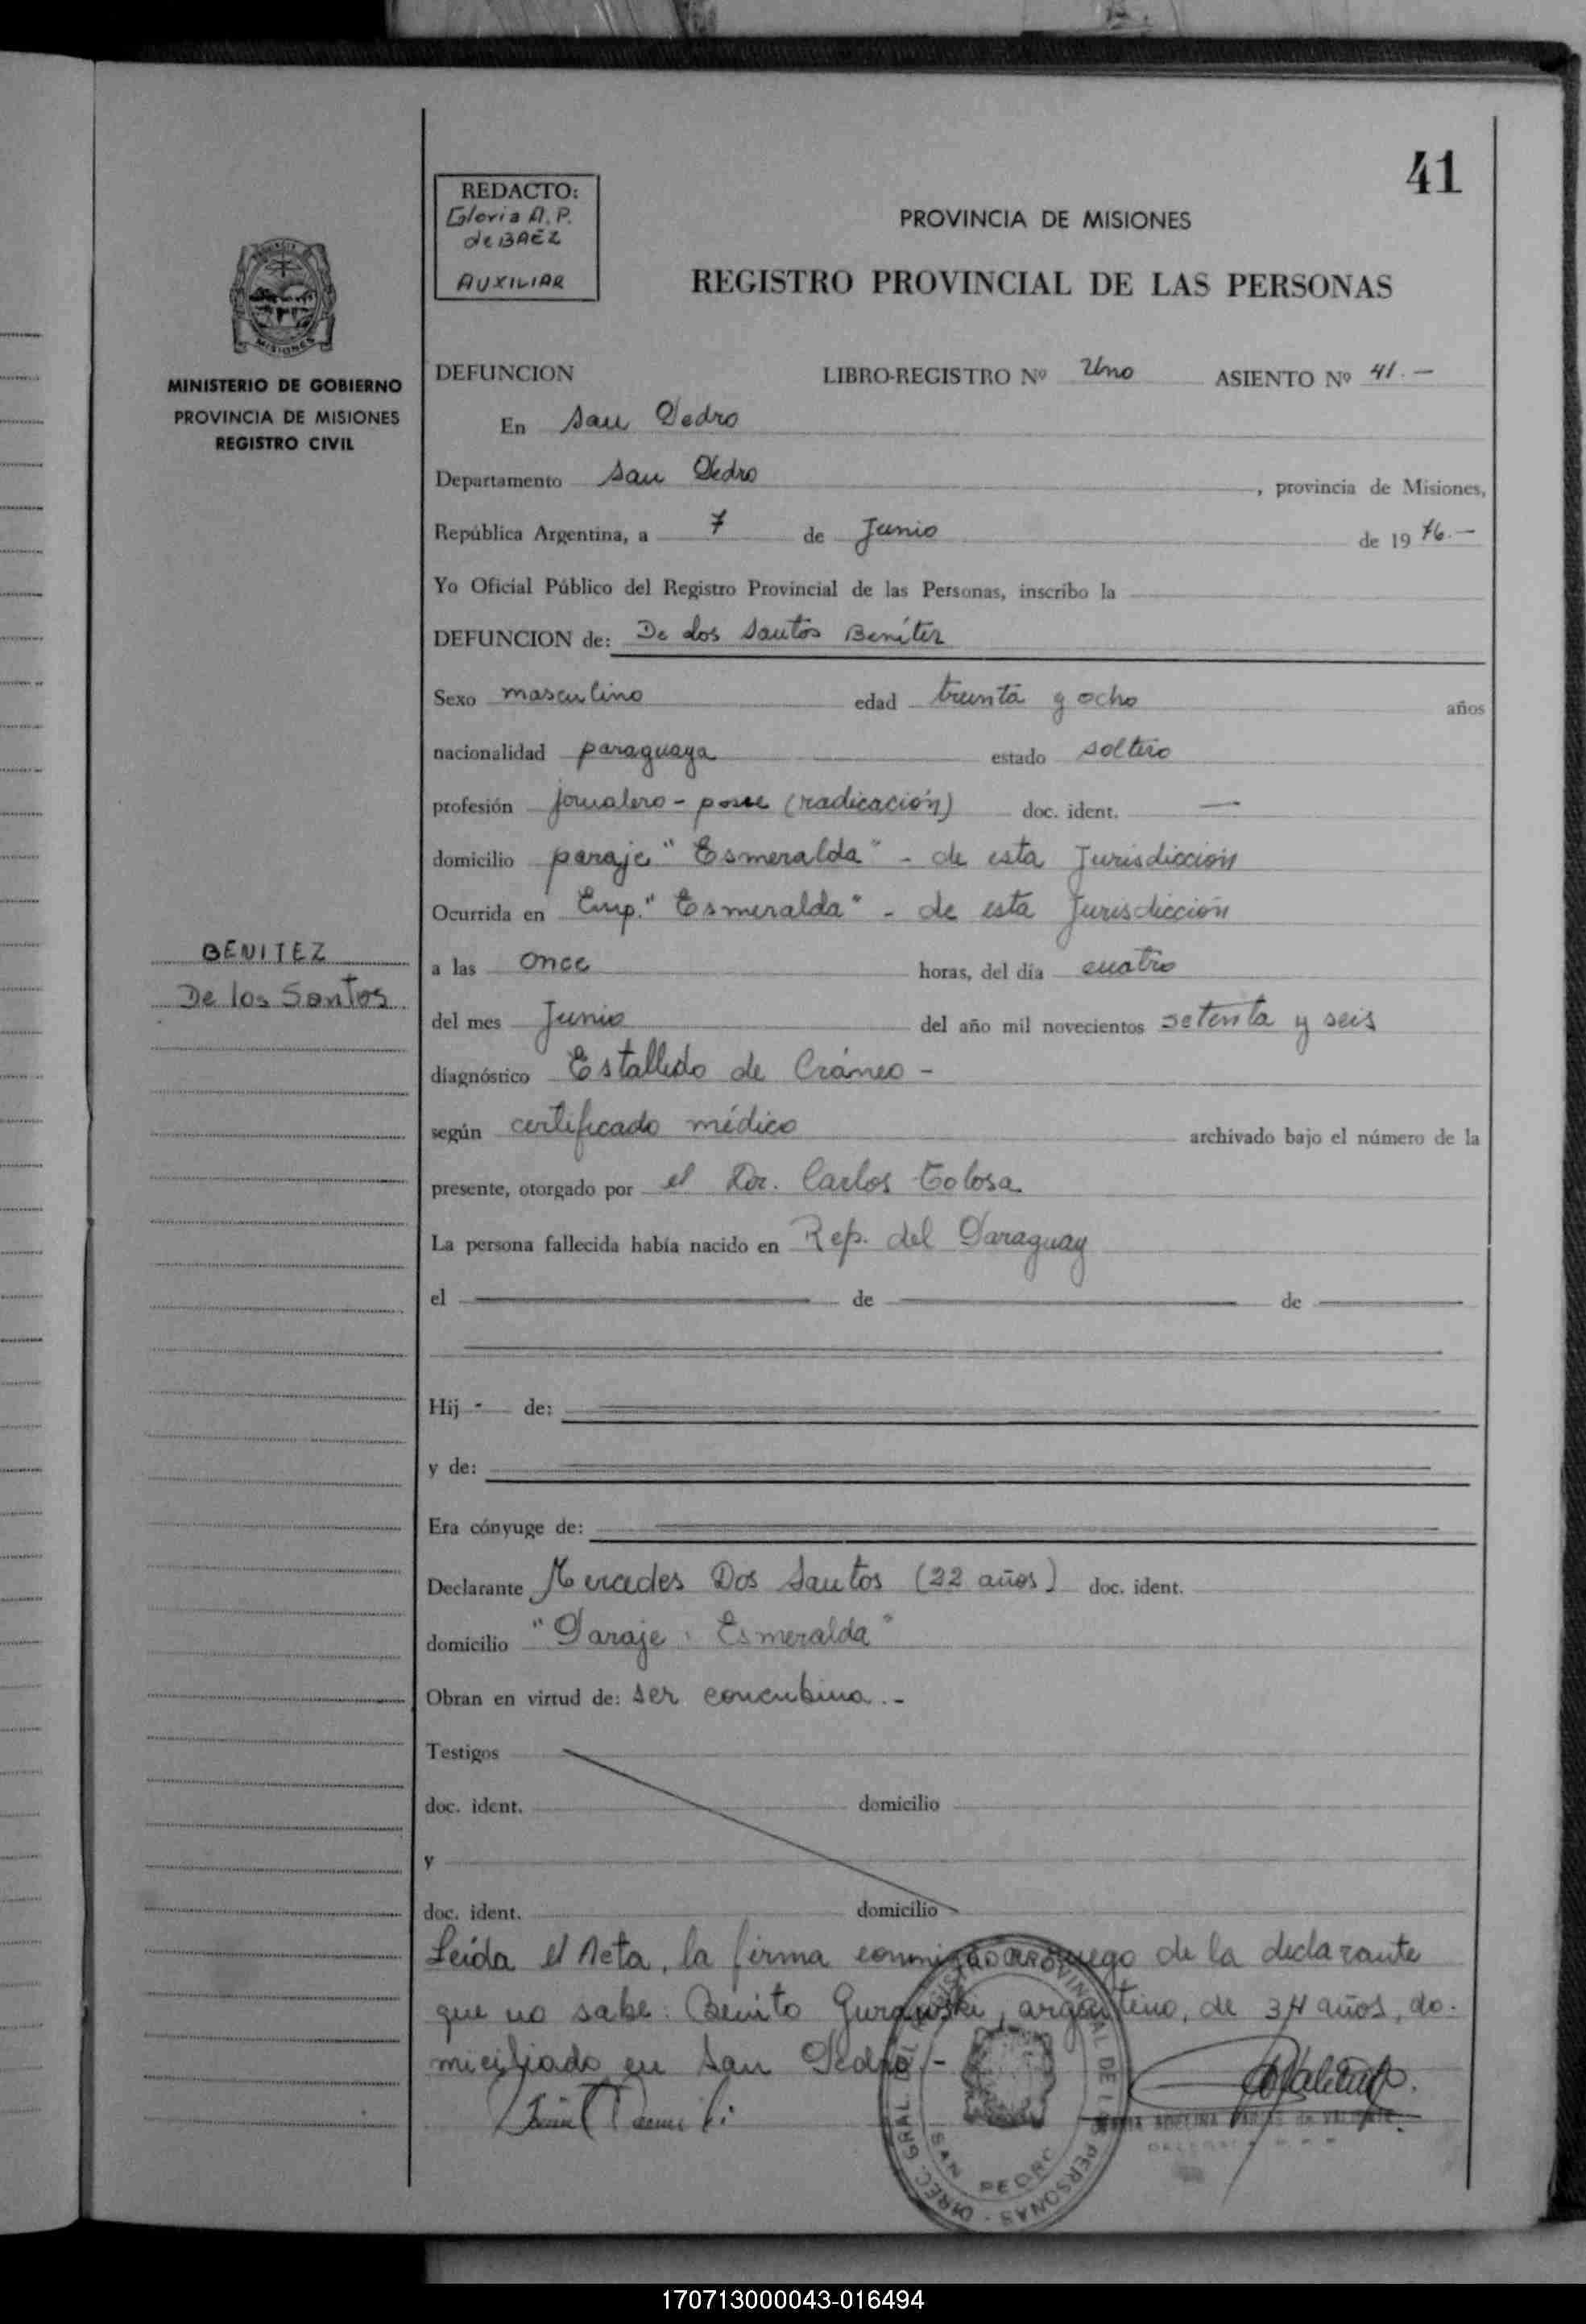 41
REDACTO:
Gloria A. P.
de BAEZ
AUXILIAR
PROVINCIA DE MISIONES
REGISTRO PROVINCIAL DE LAS PERSONAS
MINISTERIO DE GOBIERNO
PROVINCIA DE MISIONES
REGISTRO CIVIL
DEFUNCION LIBRO-REGISTRO Nº Uno ASIENTO Nº 41.-
En San Pedro
Departamento San Pedro, provincia de Misiones,
República Argentina, a 7 de Junio de 1976.-
Yo Oficial Público del Registro Provincial de las Personas, inscribo la
DEFUNCION de: De los Santos Benítez
Sexo masculino edad treinta y ocho años
nacionalidad paraguaya estado soltero
profesión jornalero - posee (radicación) doc. ident. —
domicilio paraje "Esmeralda" - de esta Jurisdicción
Ocurrida en Emp. "Esmeralda" - de esta Jurisdicción
BENITEZ
De los Santos
a las once horas, del día cuatro
del mes Junio del año mil novecientos setenta y seis
diagnóstico Estallido de Cráneo -
según certificado médico archivado bajo el número de la
presente, otorgado por el Dr. Carlos Tolosa
La persona fallecida había nacido en Rep. del Paraguay
el — de — de —
Hij - de:
y de:
Era cónyuge de:
Declarante Mercedes Dos Santos (22 años) doc. ident.
domicilio "Paraje Esmeralda"
Obran en virtud de: ser concubina.-
Testigos
doc. ident. domicilio
y
doc. ident. domicilio
Leída el Acta, la firma conmigo a ruego de la declarante
que no sabe: Benito argentino, de 34 años, do-
miciliado en San Pedro.-
DIREC. GRAL. DEL REGISTRO PROVINCIAL DE LAS PERSONAS
SAN PEDRO
170713000043-016494